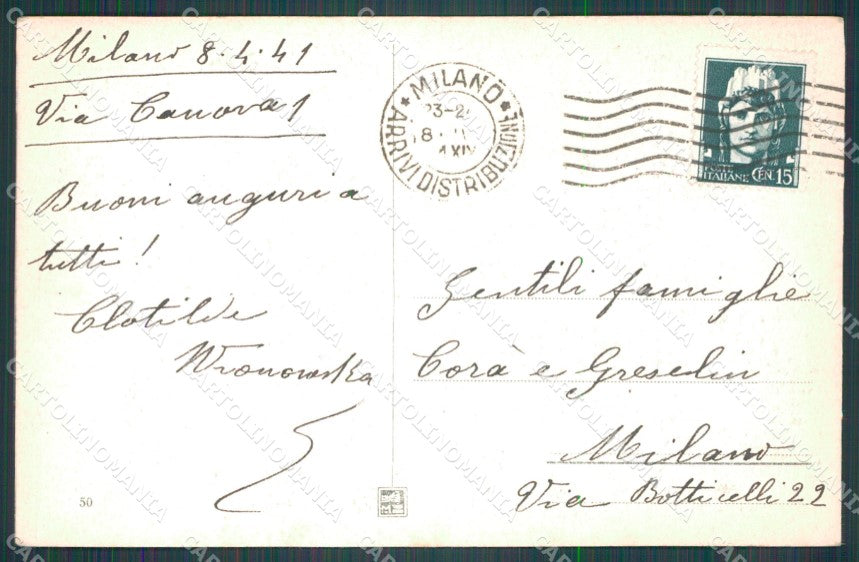 Milano 8.4.41
Via Canova 1
Buoni auguri a
tutti!
Clotilde
Wronowska
50
MILANO
ARRIVI DISTRIBUZIONE
23-2
8
XIX
POSTE
ITALIANE CEN. 15
Gentili famiglie
Corà e Greselin
Milano
Via Botticelli 22
CARTOLINOMANIA